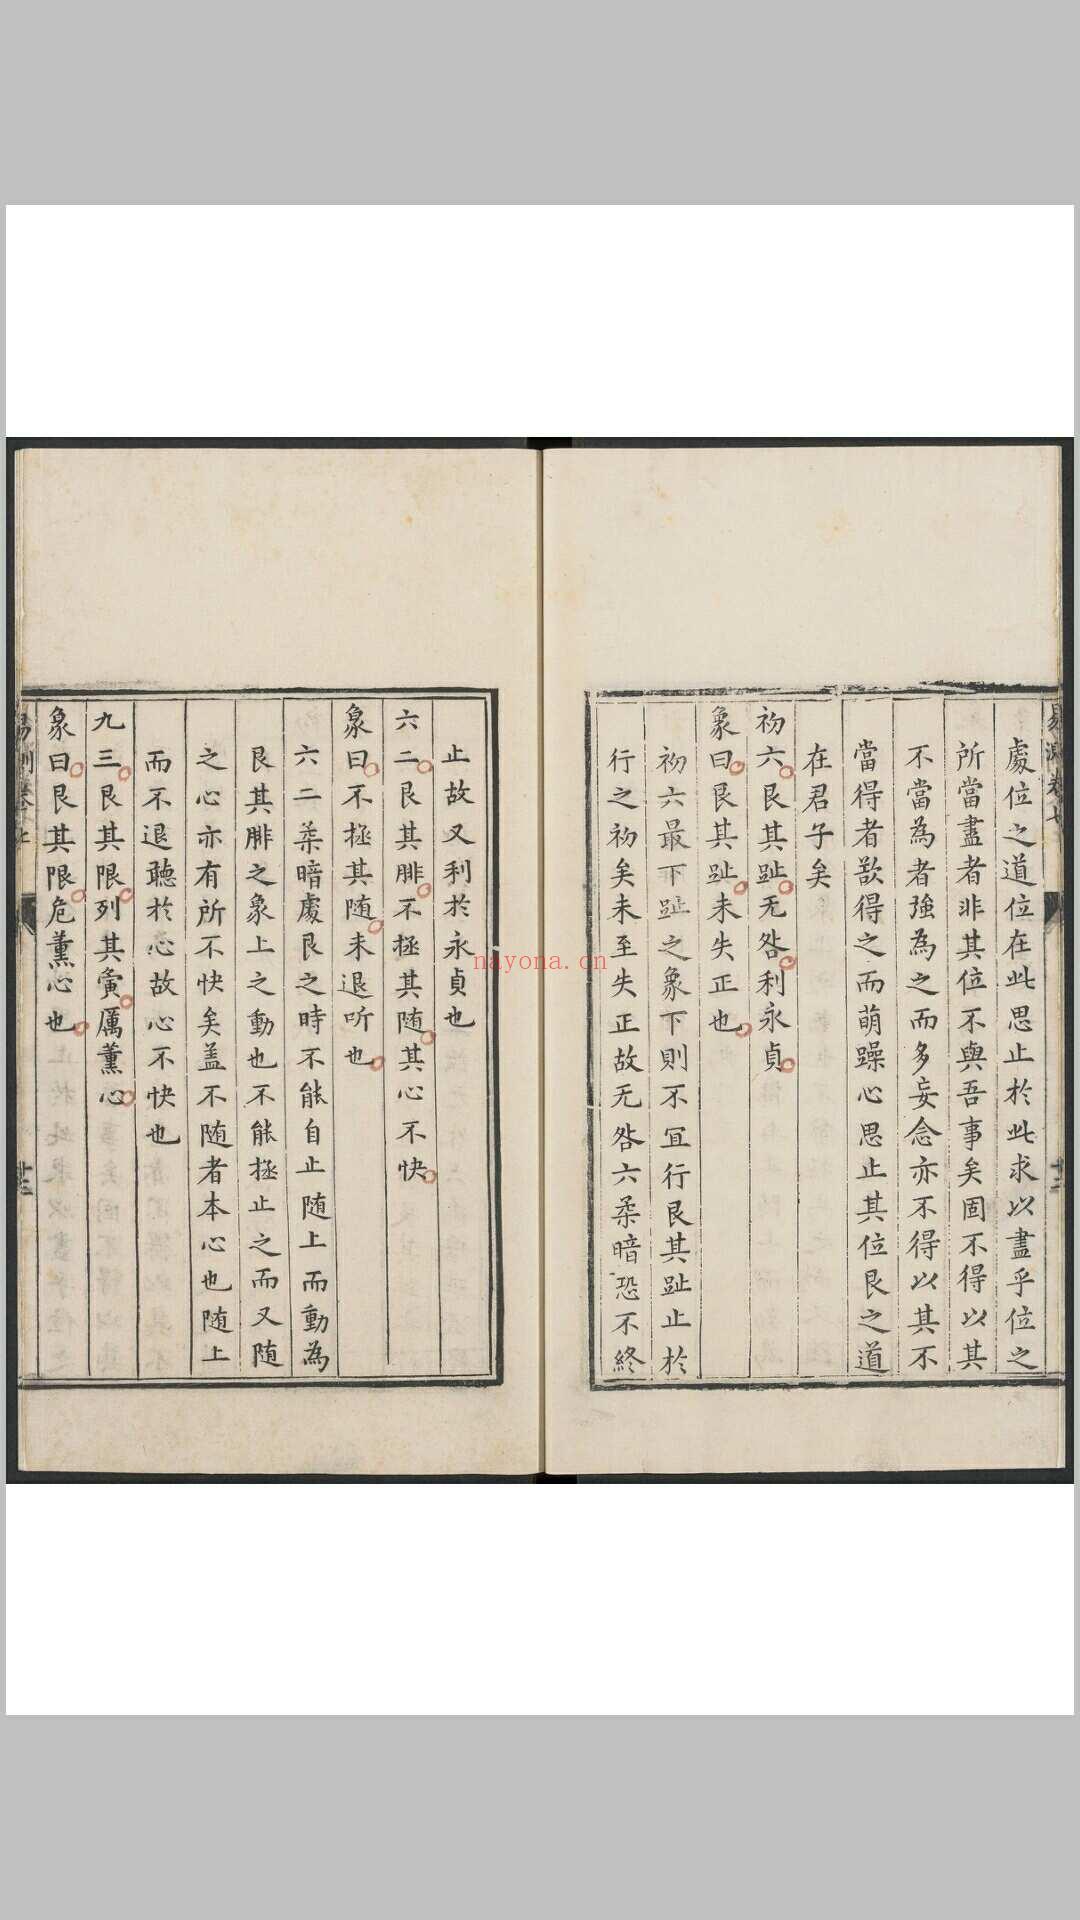 處位之道位在此思止於此求以盡乎位之
所當盡者非其位不與吾事矣固不得以其
不當為者強為之而多妄念亦不得以其不
當得者歆得之而萌躁心思止其位艮之道
在君子矣
初六艮其趾无咎利永貞
象曰艮其趾未失正也
初六最下趾之象下則不宜行艮其趾止於
行之初矣未至失正故无咎六柔暗恐不終
止故又利於永貞也
六二艮其腓不拯其随其心不快
象曰不拯其随未退听也
六二柔暗處艮之時不能自止随上而動為
艮其腓之象上之動也不能拯止之而又随
之心亦有所不快矣盖不随者本心也随上
而不退聽於心故心不快也
九三艮其限列其夤厲薰心
象曰艮其限危薰心也
nayona.cn